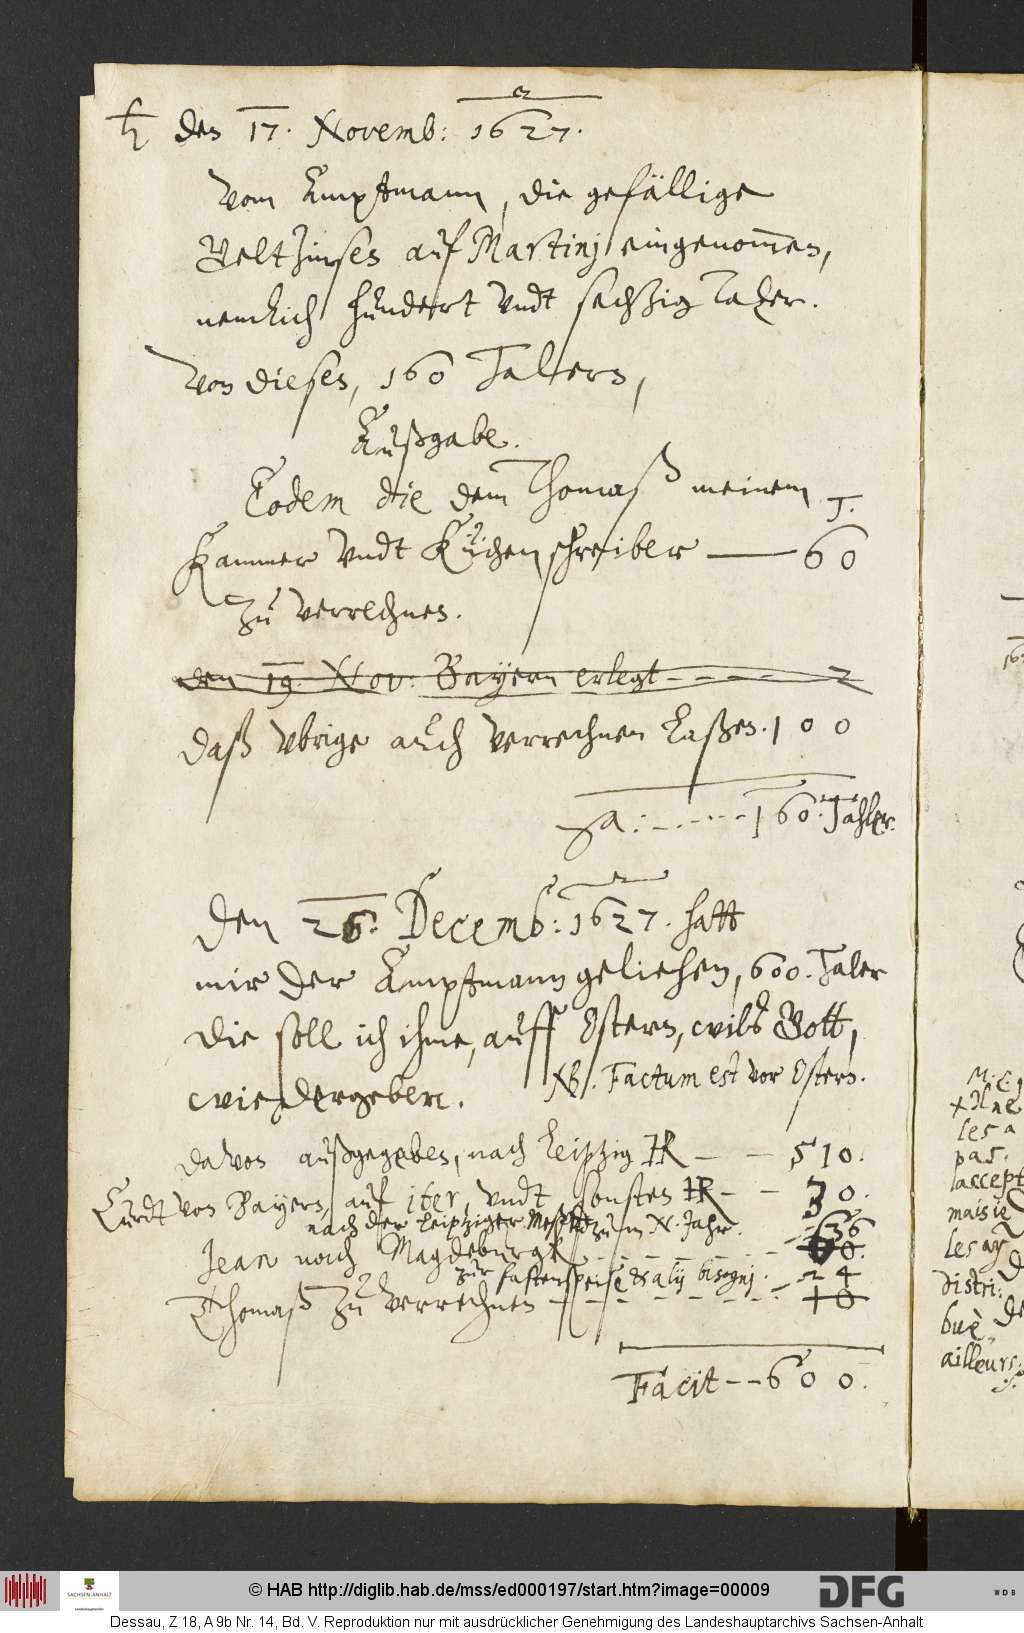 ♄ den 17. Novemb: 1627.
Vom Amptmann, die gefällige
Geltzinsen auf Martinj eingenom̅en,
nemlich hundert vndt sechzig Taler.
Von diesen, 160 Talern,
Außgabe.
Eodem die dem Thomaß meinem T.
Kammer vndt Küchenschreiber — 60
zu verrechnen.
den 19. Nov: Bayern erlegt - - - - - 2
daß vbrige auch verrechnen laßen. 100
Sa: - - - - - 160. Tahler.
Den 26. Decemb: 1627. hatt
mir der Amptmann geliehen, 600. Taler
die soll ich ihme, auff Ostern, wils Gott,
wiedergeben. NB. Factum est vor Ostern.
davon außgegeben, nach Leipzig — — 510.
Curdt von Bayern, auf iter, vndt sonsten — — 30.
nach der Leipziger zum N. Jahr. 36
Jean nach Magdeburgk - - - - 60.
zur fastenspeise & alij bisognj. - - 24
Thomaß zu verrechnen - - - - - 10
Facit - - 600.
les a
pas.
laccept
mais ie
les ay
distri:
buè
ailleurs.
© HAB http://diglib.hab.de/mss/ed000197/start.htm?image=00009
SACHSEN-ANHALT
DFG
WDB
Dessau, Z 18, A 9b Nr. 14, Bd. V. Reproduktion nur mit ausdrücklicher Genehmigung des Landeshauptarchivs Sachsen-Anhalt